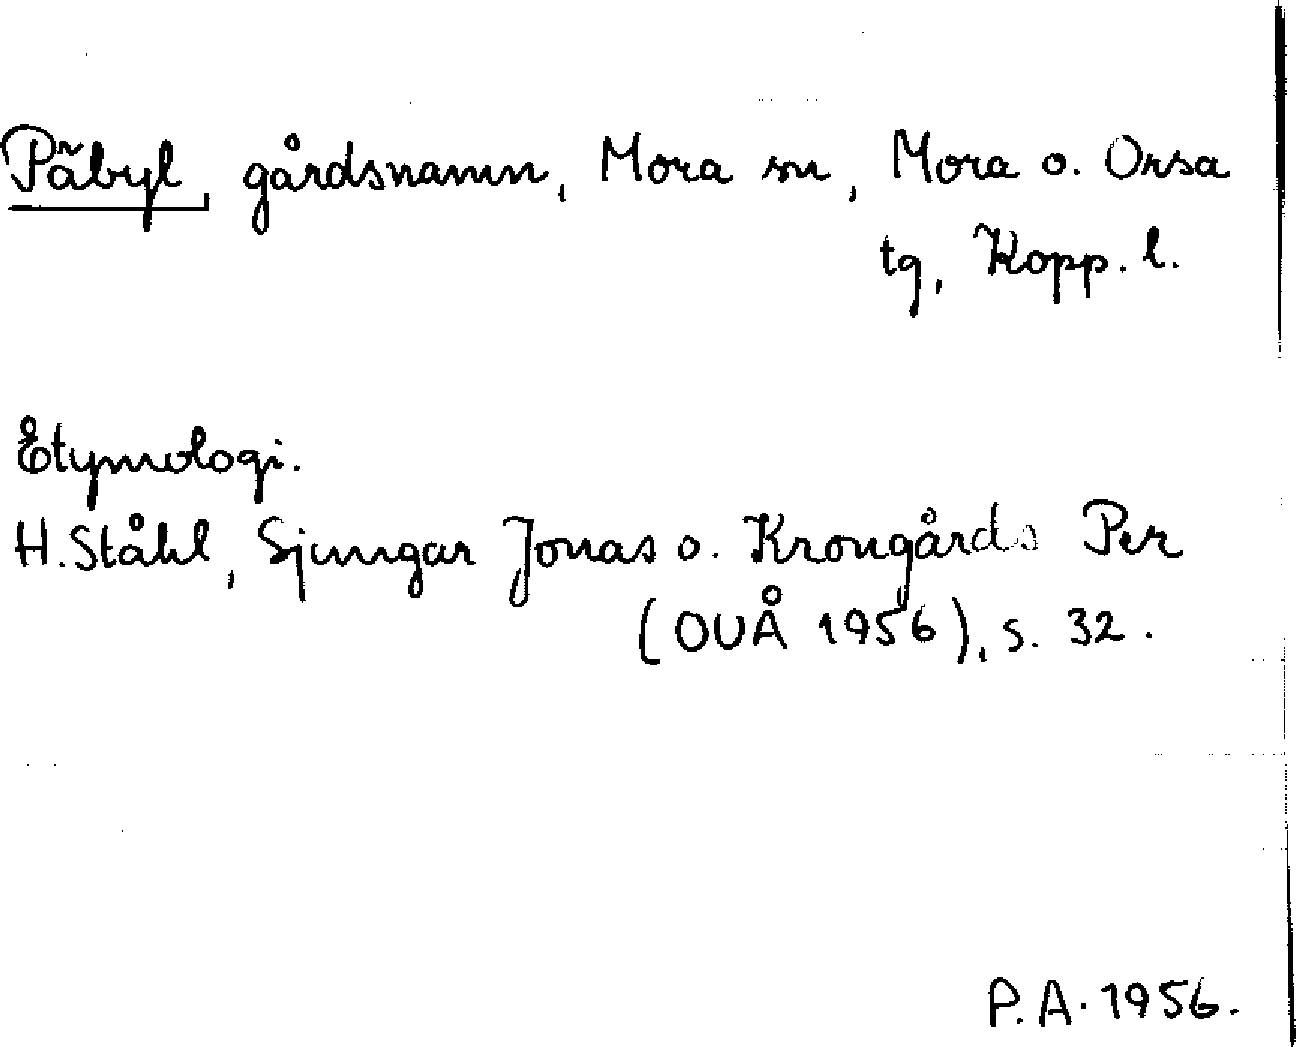 Pãbyl, gårdsnamn, Mora sn, Mora o. Orsa
tg, Kopp. l.
Etymologi.
H. Ståhl, Sjungar Jonas o. Krongårds Per
(OUÅ 1956), s. 32.
P.A. 1956.